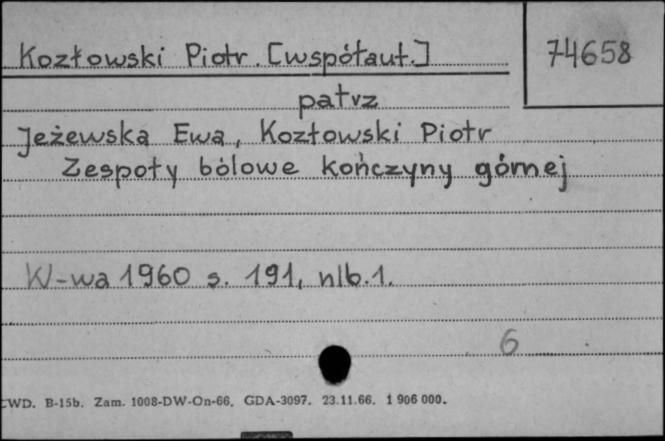 Kozłowski Piotr. [współaut.]
74658
patrz
Jeżewska Ewa, Kozłowski Piotr
Zespoły bólowe kończyny górnej
W-wa 1960 s. 191, nlb. 1.
6
CWD. B-15b. Zam. 1008-DW-On-66. GDA-3097. 23.11.66. 1 906 000.